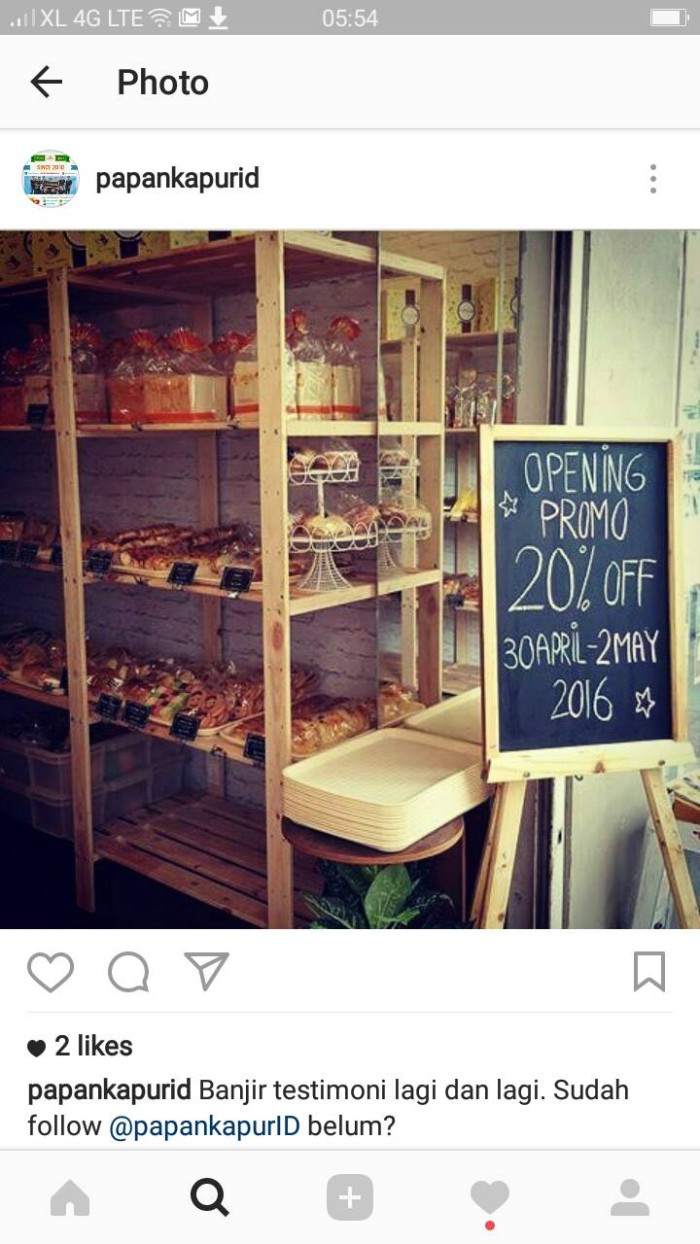 XL 4G LTE 05:54
Photo
SINCE 2010
papankapurid
OPENING
PROMO
20% OFF
30APRIL-2MAY
2016
2 likes
papankapurid Banjir testimoni lagi dan lagi. Sudah
follow @papankapurID belum?